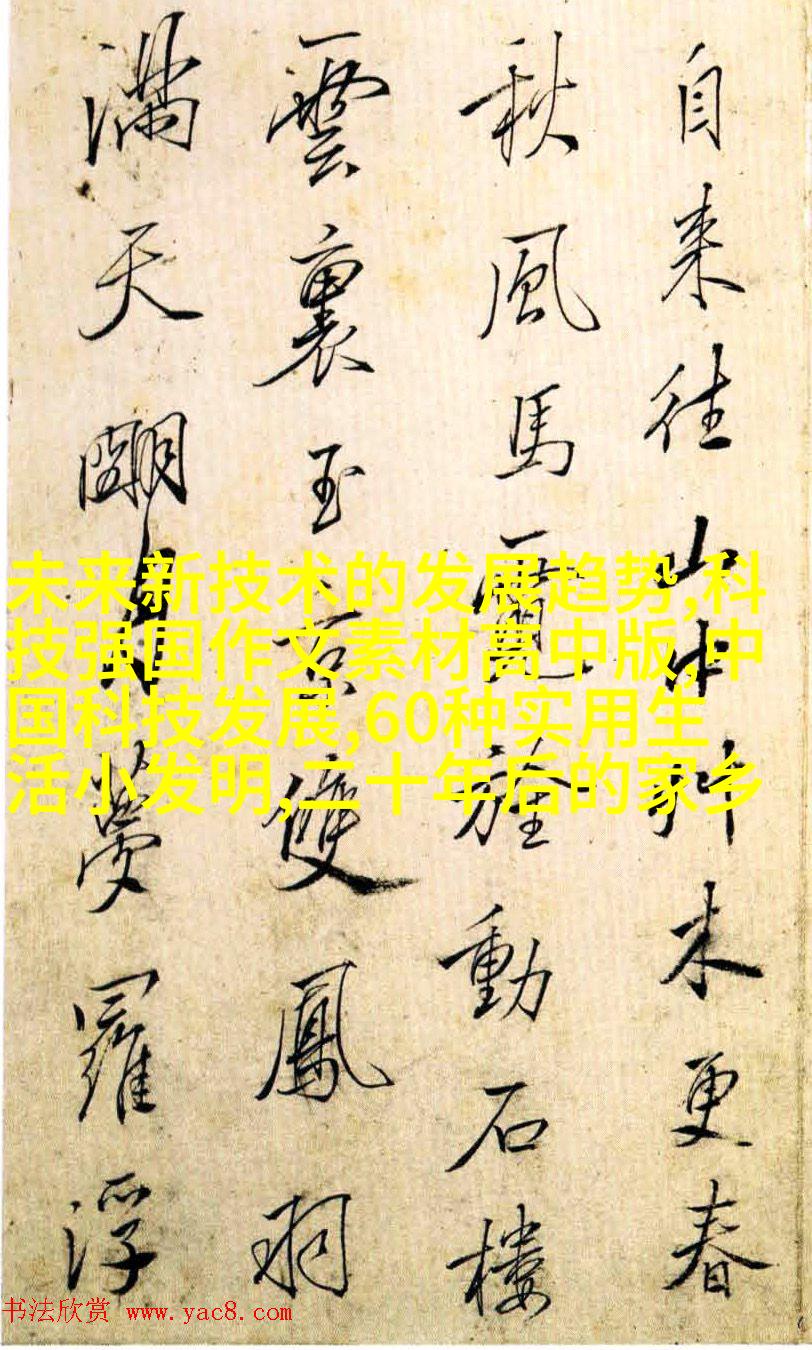 自来往山中艸木更春
秋風馬旌動石樓
雲裏玉京雙鳳羽
滿天朙月夢羅浮
未来新技术的发展趋势,科
技强国作文素材高中版,中
国科技发展,60种实用生
活小发明,二十年后的家乡
书法欣赏 www.yac8.com